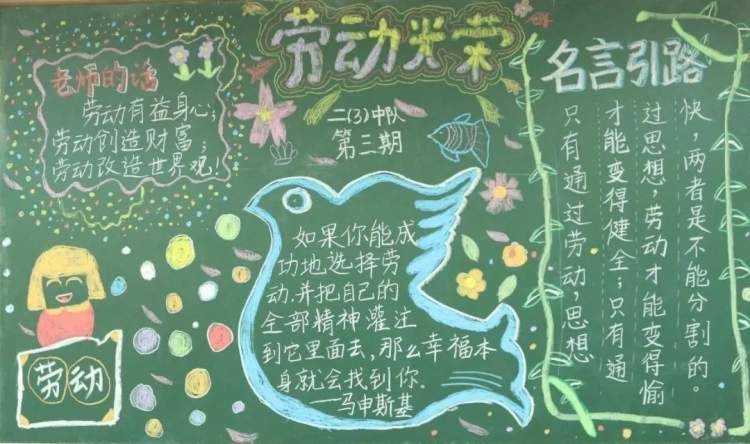 劳动光荣
二(3)中队
第三期
老师的话
劳动有益身心；
劳动创造财富；
劳动改造世界观！
如果你能成
功地选择劳
动.并把自己的
全部精神灌注
到它里面去,那么幸福本
身就会找到你.
——马申斯基
劳动
名言引路
快，两者是不能分割的。
过思想劳动才能变得愉
才能变得健全；只有通
只有通过劳动，思想